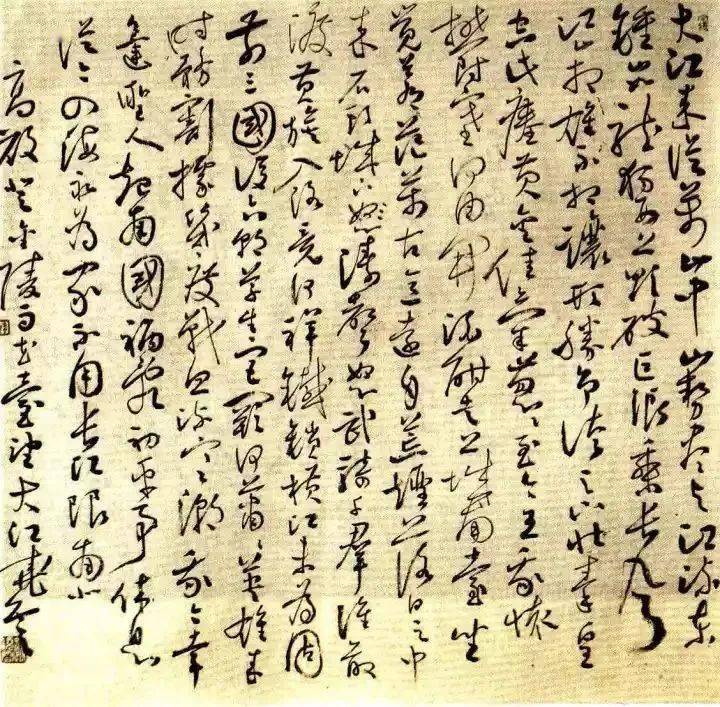 大江来從萬山中山勢尽与江流东
鍾山如龍獨西上欲破巨浪乘長風
江山相雄不相讓形勝争誇天下壮秦皇
空此瘞黄金佳氣葱々至今王我懷
鬱塞何由開酒酣走上城南臺坐
覺蒼茫萬古意遠自荒煙落日之中
来石頭城下濤聲怒武騎千群誰敢
渡黄旗入洛竟何祥鐵鎖横江未為固
前三國後六朝草生宫闕何蕭々英雄来
時務割據幾度戰血流寒潮我今幸
逢聖人起南國禍亂初平事休息
從今四海永為家不用長江限南北
高啟登金陵雨花臺望大江